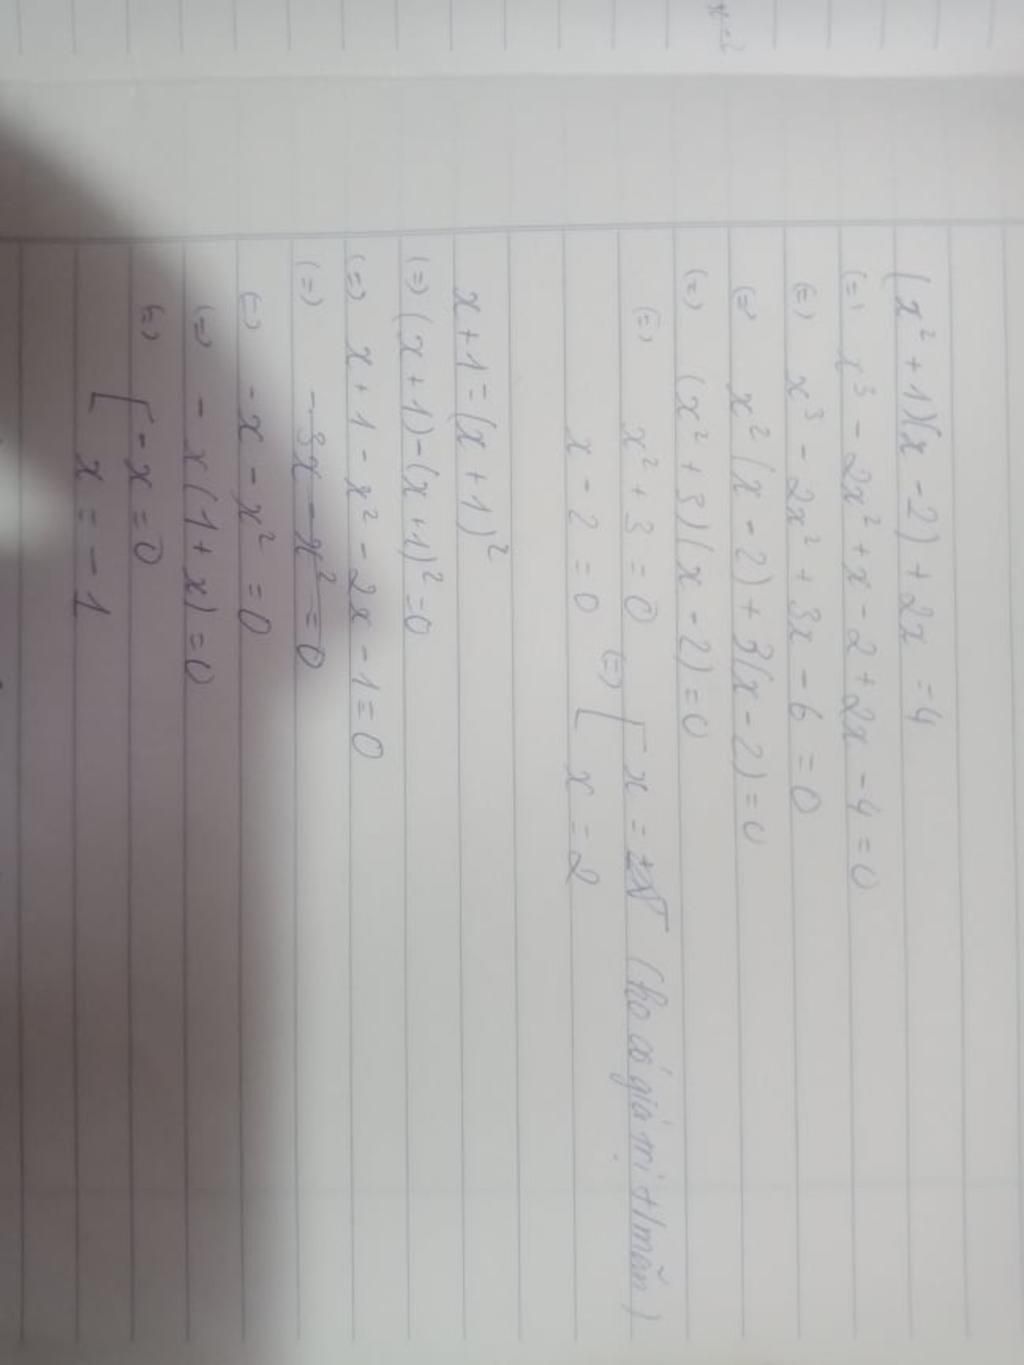 x-2
(x² + 1)(x - 2) + 2x = 4
(=) x³ - 2x² + x - 2 + 2x - 4 = 0
(=) x³ - 2x² + 3x - 6 = 0
(=) x² (x - 2) + 3(x - 2) = 0
(=) (x² + 3)(x - 2) = 0
(=) x² + 3 = 0 (=) [ x = (ko có giá trị t/mãn)
x - 2 = 0 x = 2
x + 1 = (x + 1)²
(=) (x + 1) - (x + 1)² = 0
(=) x + 1 - x² - 2x - 1 = 0
(=) - 3x - x² = 0
(=) - x - x² = 0
(=) - x (1 + x) = 0
(=) [ - x = 0
x = - 1